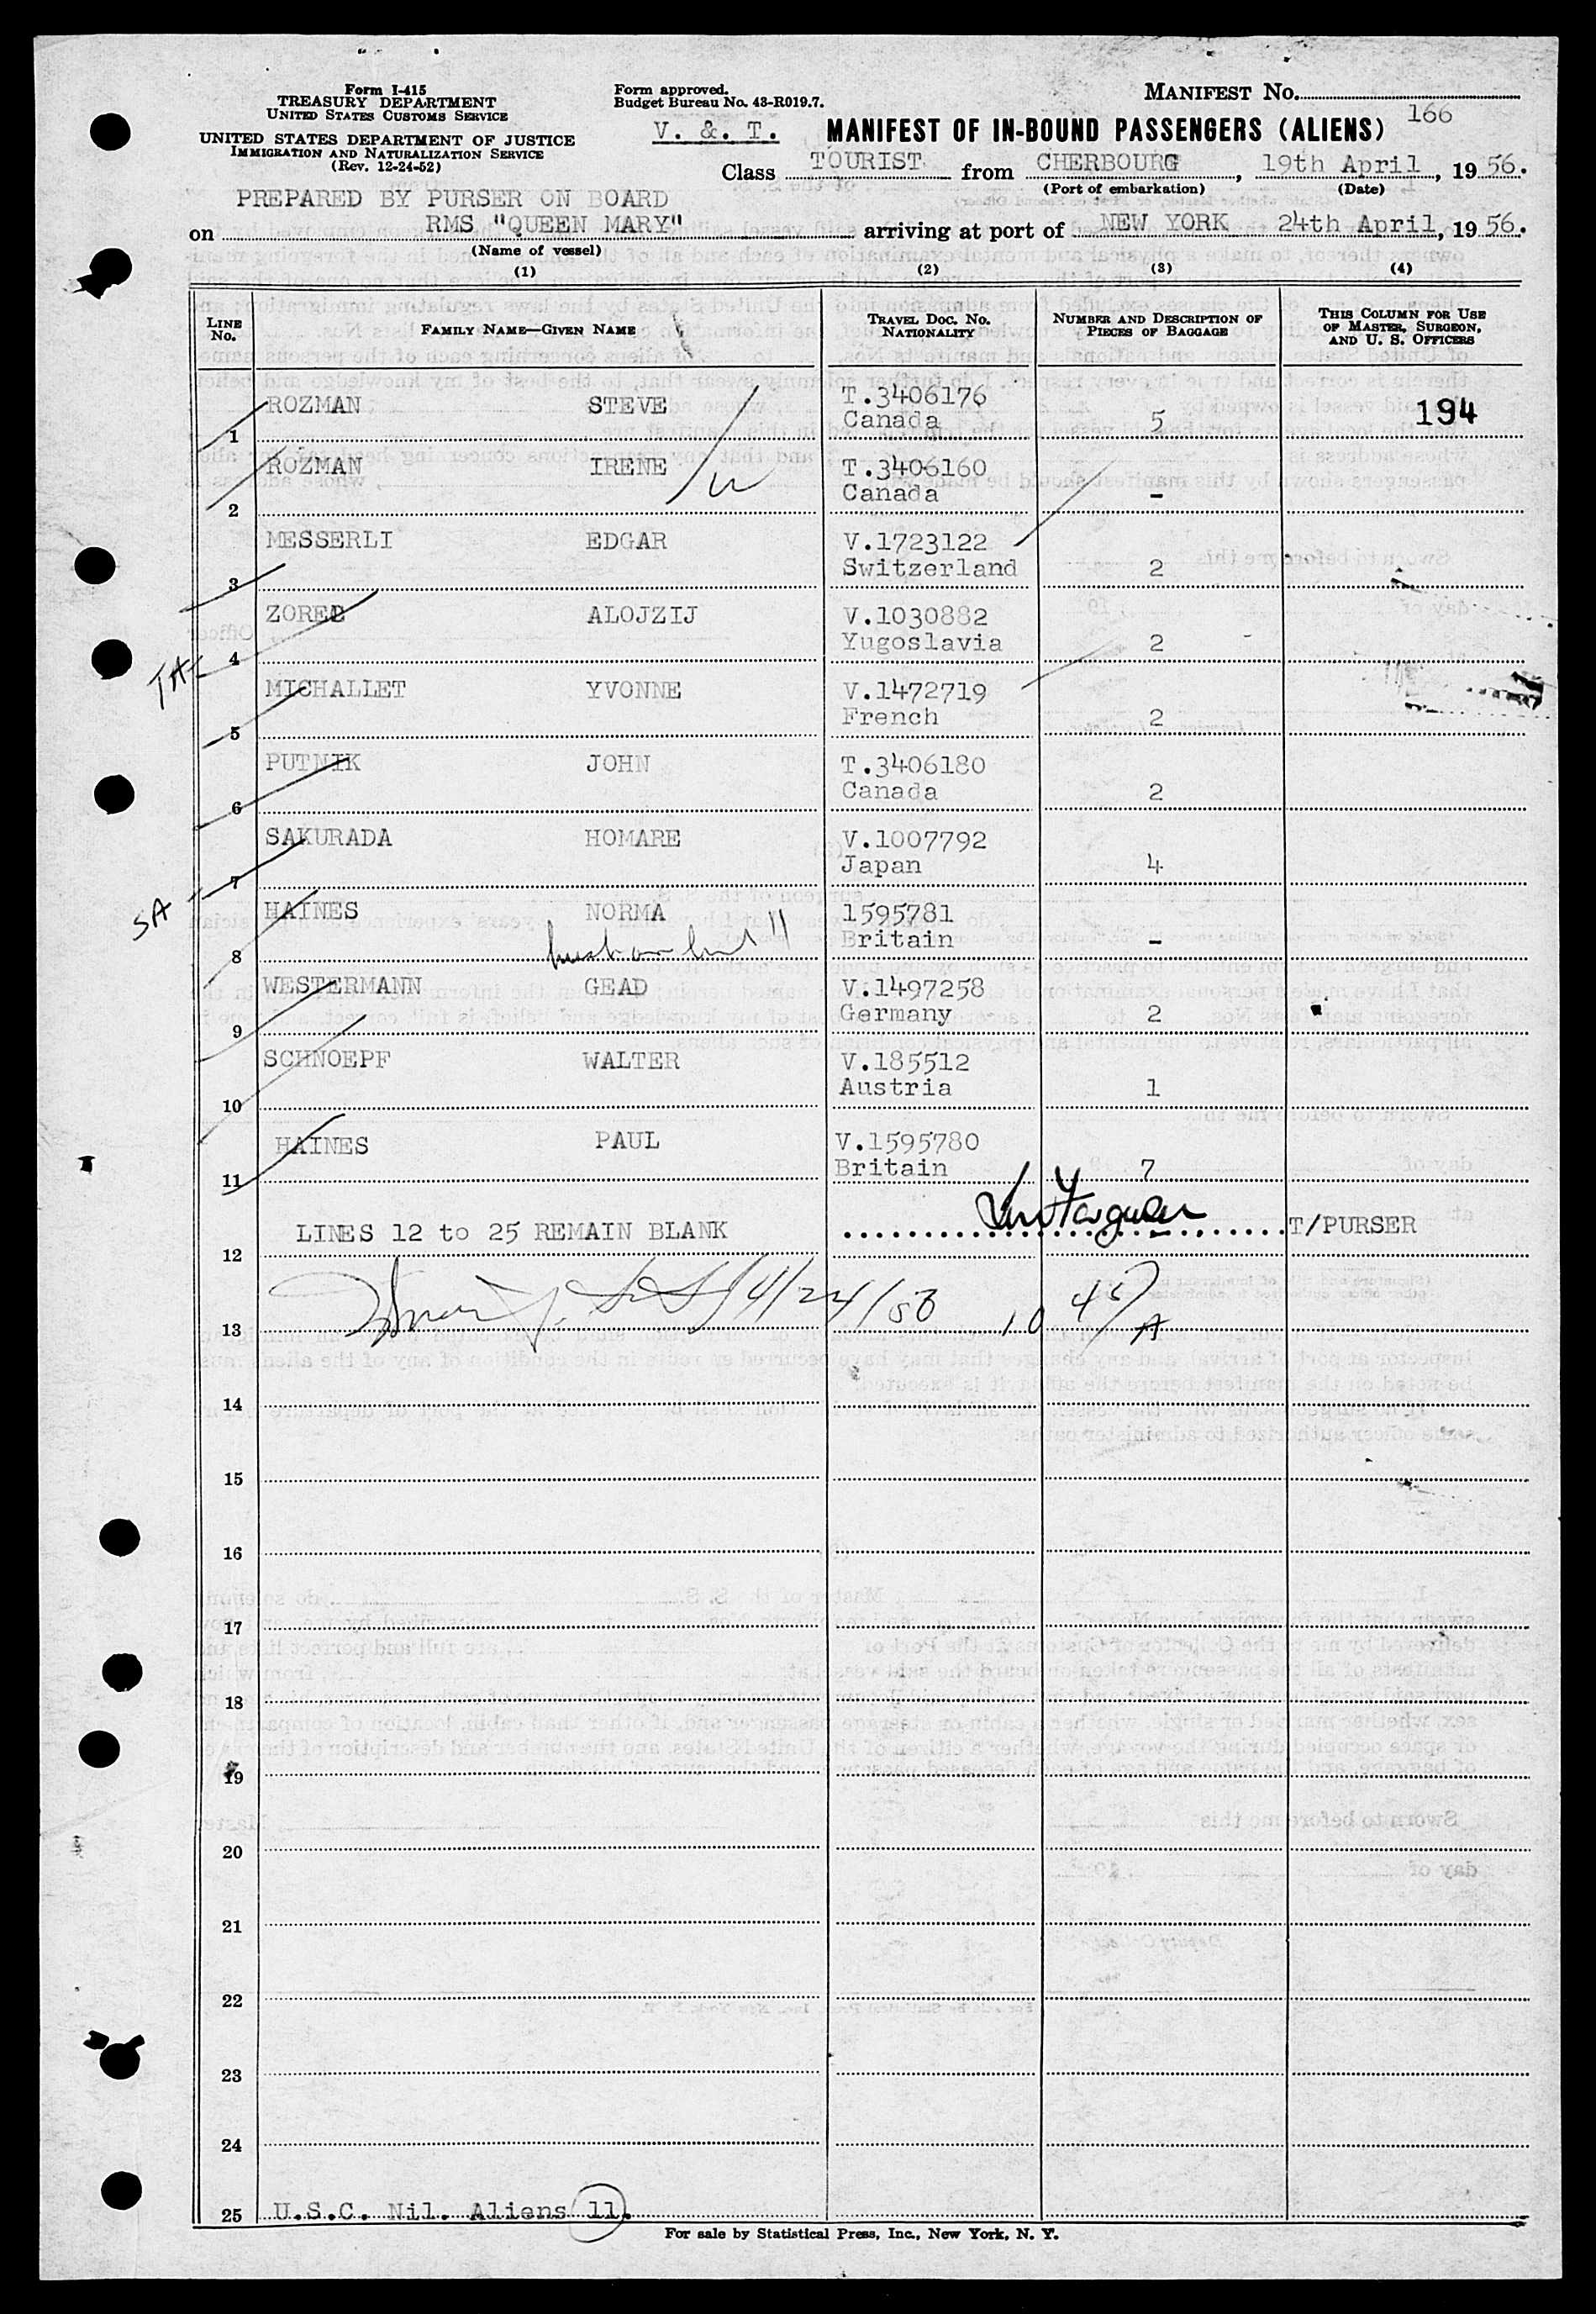 Form I-415
TREASURY DEPARTMENT
UNITED STATES CUSTOMS SERVICE
UNITED STATES DEPARTMENT OF JUSTICE
IMMIGRATION AND NATURALIZATION SERVICE
(Rev. 12-24-52)
Form approved.
Budget Bureau No. 43-R019.7.
MANIFEST No.
166
V. &. T. MANIFEST OF IN-BOUND PASSENGERS (ALIENS)
Class TOURIST from CHERBOURG, 19th April, 1956.
(Port of embarkation) (Date)
PREPARED BY PURSER ON BOARD
on RMS "QUEEN MARY" arriving at port of NEW YORK 24th April, 1956.
(Name of vessel)
(1) (2) (3) (4)
LINE No. FAMILY NAME—GIVEN NAME TRAVEL DOC. No. NATIONALITY NUMBER AND DESCRIPTION OF PIECES OF BAGGAGE THIS COLUMN FOR USE OF MASTER, SURGEON, AND U. S. OFFICERS
ROZMAN STEVE T.3406176
1 Canada 5 194
ROZMAN IRENE T.3406160
2 Canada -
MESSERLI EDGAR V.1723122
3 Switzerland 2
ALOJZIJ V.1030882
4 Yugoslavia 2
TA
MICHALLET YVONNE V.1472719
5 French 2
PUTNIK JOHN T.3406180
6 Canada 2
SAKURADA HOMARE V.1007792
7 Japan 4
SA
HAINES NORMA 1595781
8 husband 11 Britain -
WESTERMANN GEAD V.1497258
9 Germany 2
SCHNOEPF WALTER V.185512
10 Austria 1
HAINES PAUL V.1595780
11 Britain 7
LINES 12 to 25 REMAIN BLANK T/PURSER
12
13 4/24/56 10 45 A
14
15
16
17
18
19
20
21
22
23
24
25 U.S.C. Nil. Aliens 11.
For sale by Statistical Press, Inc., New York, N. Y.